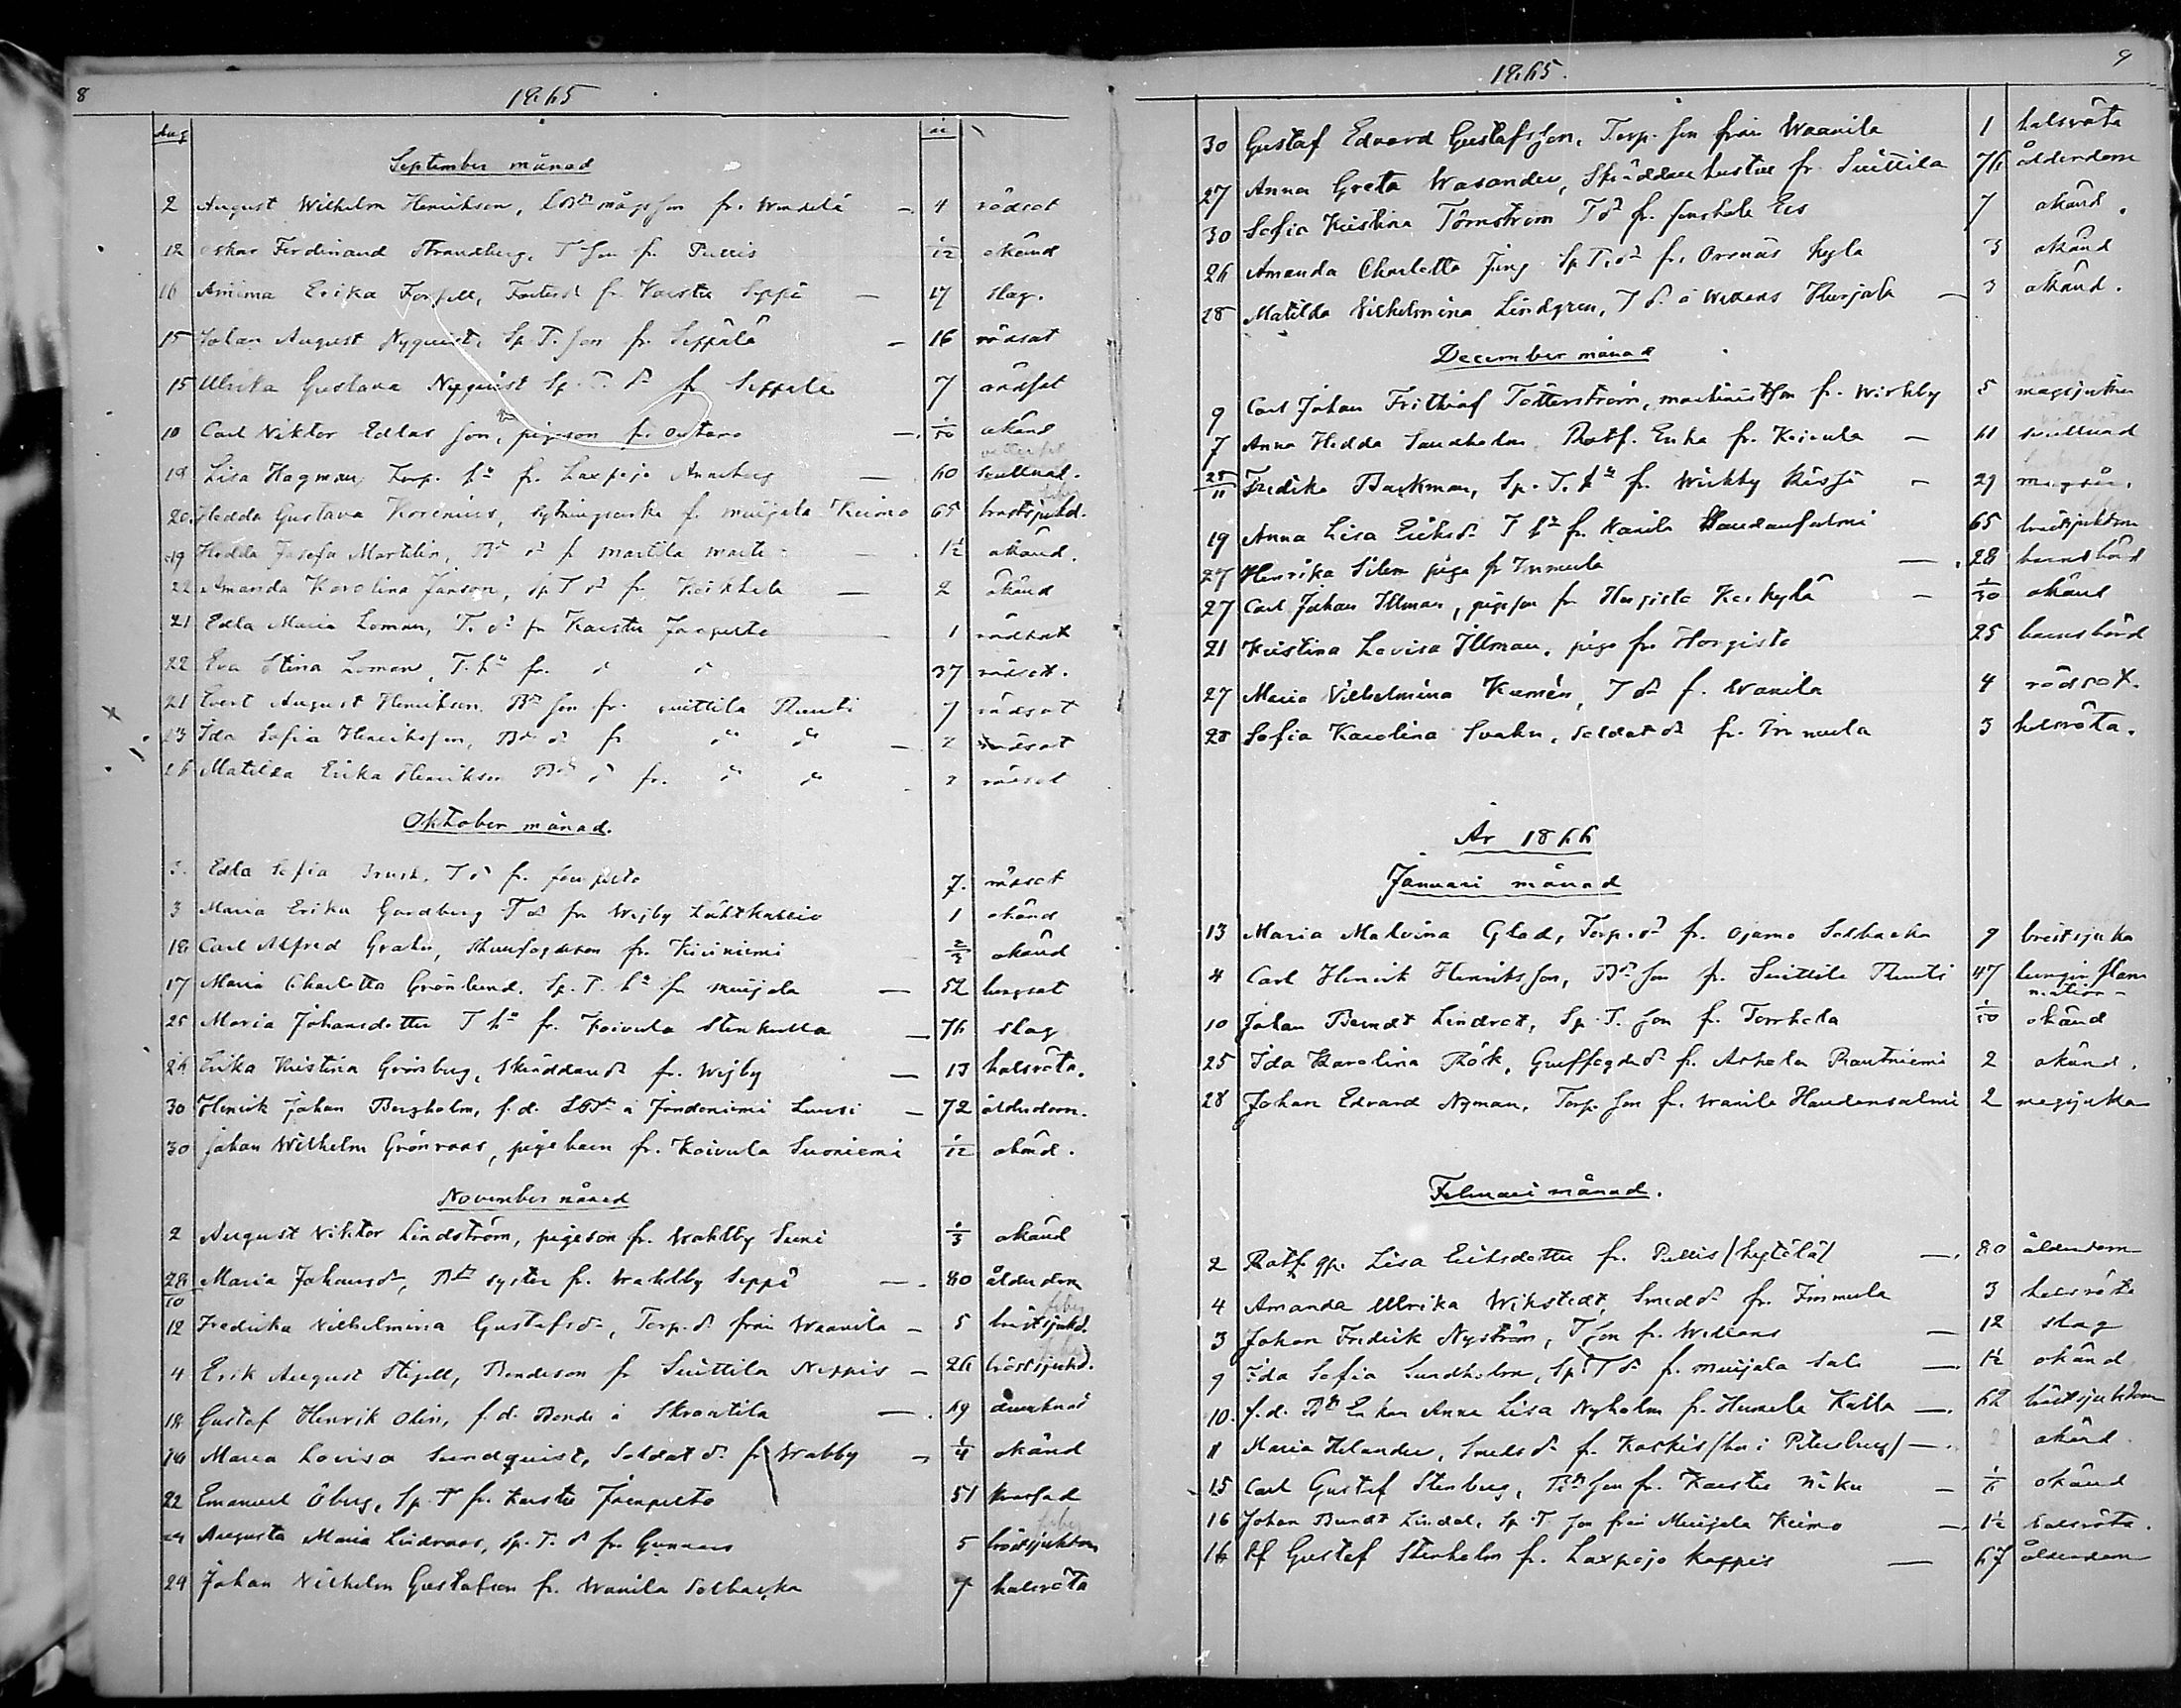 8
1865
Aug
år
September månad
2 August Wilhelm Henrikson, LBds mågs son fr. Wendelä — 4 rödsot
12 Oskar Ferdinand Strandberg, T son fr. Pullis 1/12 okänd
16 Amanda Erika Forsell, fr. Karstu Seppä — 17 slag.
15 Johan August Nyquist, Sp. T. son fr. Seppälä — 16 rödsot
15 Ulrika Gustava Nyquist Sp. T. dr fr Seppälä 7 rödsot
10 Carl Viktor Edlas son, pigeson fr. Outamo —. 1/50 okänd
19 Lisa Hagman, Torp. hu fr. Laxpojo Anneberg — 60 svullnad.
20 Hedda Gustava Korenius, sytningsenka f. Muijala Keimo 65 bröstsjukd.
19 Hedda Josefa Martelin, Bd dr fr Martila — 1 1/2 okänd.
22 Amanda Karolina Janson, sp T dr fr. Keikkala — 2 okänd
21 Edla Maria Loman, T. dr fr Karstu Jönpelto — 1 rödsot
22 Eva Stina Loman, T. hu fr. d d 37 rödsot.
21 Evert August Henrikson Bd son fr. Suittila Ruuti 7 rödsot
23 Ida Sofia Henrikson, Bd dr fr d:o d:o — 2 rödsot
26 Matilda Erika Henrikson Bd dr fr. d:o d:o 2 rödsot
Oktober månad.
3. Edla Sofia Brusk, T dr fr. Jönpelto 7. rödsot
3 Maria Erika Gardberg T dr fr Wejby Lähtkallio 1 okänd
18 Carl Alfred Grahn, fr. Kiviniemi okänd
17 Maria Charlotta Grönlund, Sp. T. hu fr Muijala — 52 lungsot
25 Maria Johansdotter T hu fr. Koivula Stenkulla — 76 slag
26 Erika Kristina Grönberg, Skräddare dr fr. Wejby — 13 halsröta.
30 Henrik Johan Bergholm, f.d. LBd å Jöndoniemi Luusi — 72 ålderdom.
30 Johan Wilhelm Grönroos, pige barn fr. Koivula Suoniemi 1/12 okänd.
November månad
2 August Viktor Lindström, pigeson fr. Wohlby Suni 1/3 okänd
28/10 Maria Johansdr, Bds syster fr. Wahlby Seppä —. 80 ålderdom
12 Fredrika Wilhelmina Gustafsdr, Torp. dr från Waanila — 5 bröstsjukd.
feber
4 Erik August Stigell, Bondeson fr Suittila Nippis — 26 bröstsjukd.
18 Gustaf Henrik Olin, f.d. Bonde å Skraatila —. 69 drunknad
10 Maria Lovisa Sundquist, Soldat dr fr Wabby — 1/4 okänd
22 Emanuel Öberg, Sp. T fr. Karstu Jönpelto 51
24 Augusta Maria Lindroos, Sp. T. dr fr Gunnars 5 bröstsjukdom
feber
29 Johan Wilhelm Gustafson fr. Wanila Solbacka 7 halsröta
9
1865.
30 Gustaf Edvard Gustafsson, Torp. son från Waanila 1 halsröta
27 Anna Greta Wasander, Skräddare hustru fr Suittila 76 ålderdom
30 Sofia Kristina Törnström T dr fr. 7 okänd.
26 Amanda Charlotta Jung Sp T. dr fr. Ornäs Kyla 3 okänd
28 Matilda Wilhelmina Lindgren, T dr å Wekans Hurjala — 3 okänd.
December månad
9 Carl Johan Frithiof Tötterström, machinist son fr. Wirkby 5 magsjuka
7 Anna Hedda Sundholm Rotf. Enka fr. Koivula — 61 svullnad
28/11 Fredika Backman, Sp. T. hu fr. Wirkby — 29
19 Anna Lisa Eriksdr T hu fr. Wanila Haudansalmi 65 bröstsjukdom
27 Henrika Silen piga fr Immula —. 28 barnsbörd
27 Carl Johan Illman, pigeson fr Horgisto Keskylä — 1/30 okänd
21 Kristina Lovisa Illman, piga fr Horgisto 25 barnsbörd
27 Maria Wilhelmina Kumén, T dr f. Wanila 4 rödsot.
28 Sofia Karolina Svahn, soldat dr fr. Immula 3 halsröta.
År 1866
Januari månad
13 Maria Malvina Glad, Torp. dr fr. Ojamo Solbacka 9 bröstsjuka
4 Carl Henrik Henriksson, Bd son fr. Suittila Ruuti 47 lunginflam
mation
10 Johan Berndt Lindrot, Sp. T. son fr. Torrhola 1/50 okänd
25 Ida Karolina Rök, dr fr. Askola Rautniemi 2 okänd.
28 Johan Edvard Nyman, Torp. son fr. Wanila Haudansalmi 2 magsjuka
Februari månad.
2 Rotf. Lisa Eriksdotter fr. Pullis /Kytölä/ —. 80 ålderdom
4 Amanda Ulrika Wikstedt, Smed dr fr. Immula 3 halsröta
3 Johan Fredrik Nyström, T son fr. Wekans — 12 slag
9 Ida Sofia Sundholm, Sp T dr fr. Muijala Sali —. 1 1/2 okänd
10. f.d. Bd Enkan Anna Lisa Nyholm fr. Humala Katla —. 62 bröstsjukdom
11 Maria Helander, Smeds dr fr. Koskis /hu i Petersburg/ —. 2 okänd
15 Carl Gustaf Stenberg, Bds son fr. Karstu Niku — okänd
16 Johan Berndt Lindel, Sp. T. son från Muijala Keimo — 1 1/2 halsröta.
16 Rf Gustaf Stenholm fr. Laxpojo Kappis — 67 ålderdom